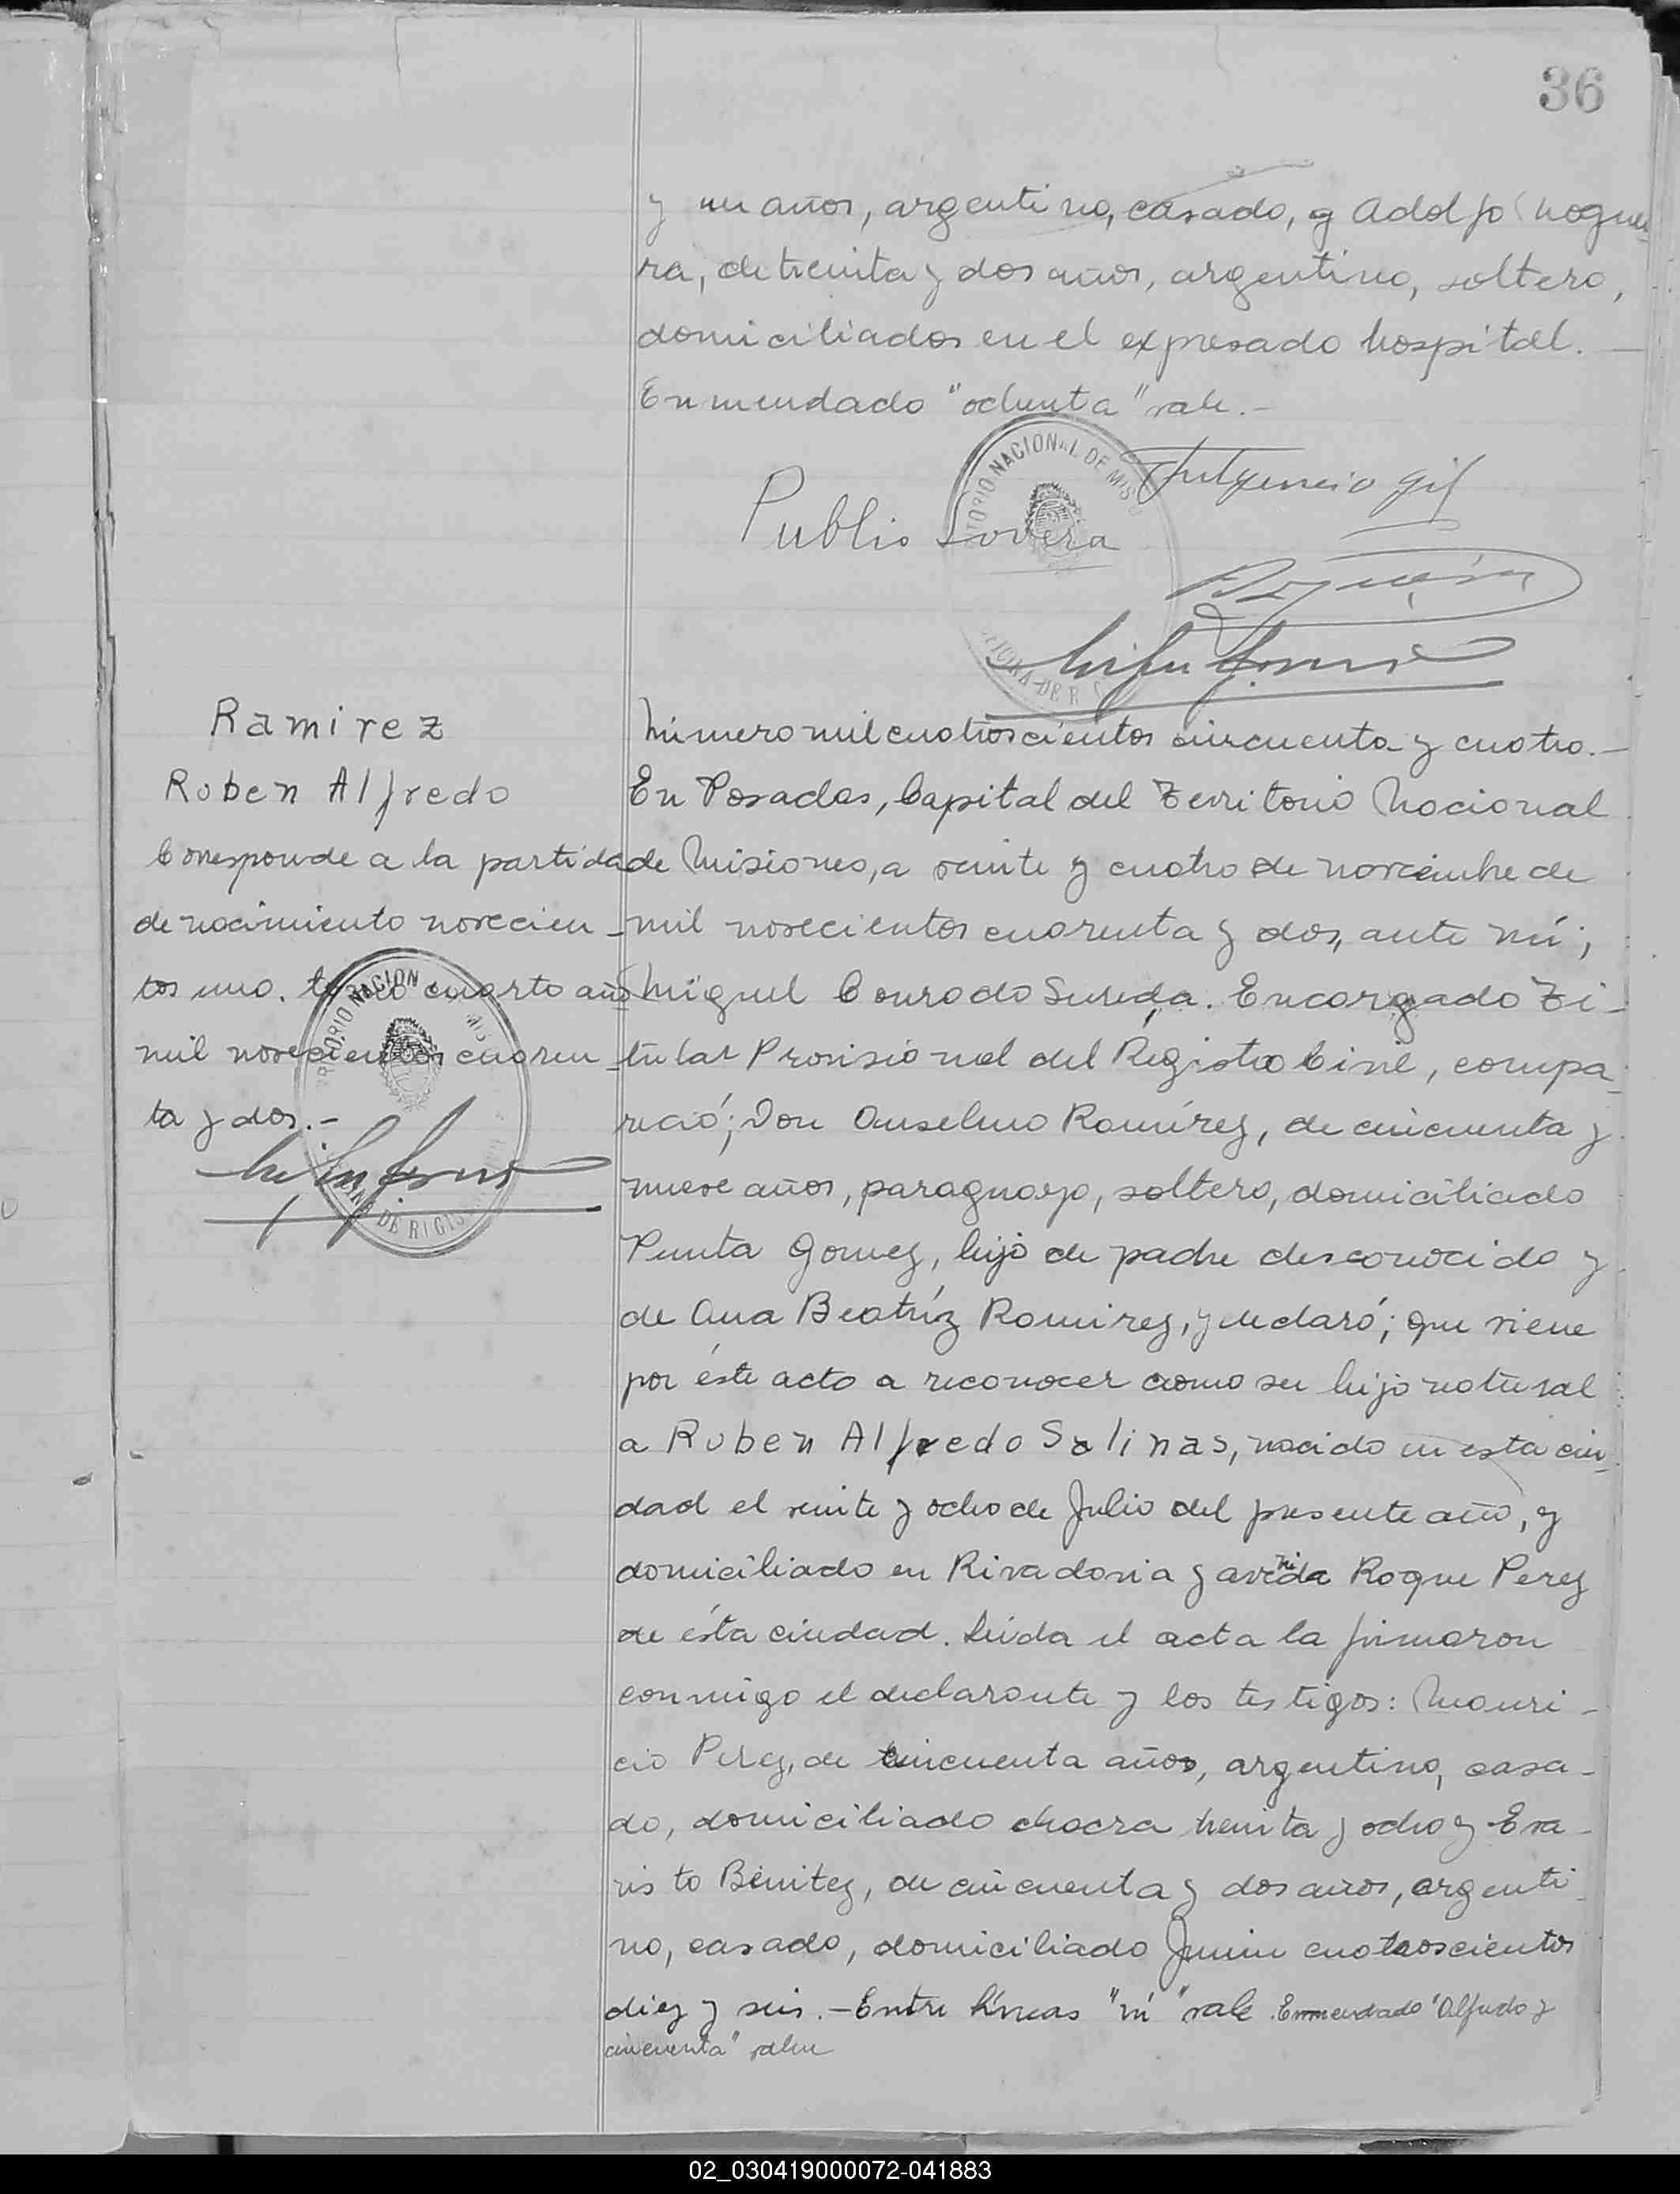 36
y un años, argentino, casado, y Adolfo Nogue-
ra, de treinta y dos años, argentino, soltero,
domiciliados en el expresado hospital.
Enmendado "ochenta" vale.-
TORIO NACIONAL DE MIS
Fulgencio Gil
Publio Lovera
Ramirez
Ruben Alfredo
Corresponde a la partida
de nacimiento novecien-
tos uno. tomo cuarto año
mil novecientos cuaren-
ta y dos.-
Número mil cuatroscientos cincuenta y cuatro.-
En Posadas, Capital del Territorio Nacional
de Misiones, a veinte y cuatro de noviembre de
mil novecientos cuarenta y dos, ante mí;
Miguel Conrado Sureda. Encargado Ti-
tular Provisional del Registro Civil, compa-
reció; Don Anselmo Ramírez, de cincuenta y
nueve años, paraguayo, soltero, domiciliado
Punta Gomez, hijo de padre desconocido y
de Ana Beatríz Ramirez, y declaró; que viene
por éste acto a reconocer como su hijo natural
a Ruben Alfredo Salinas, nacido en esta ciu-
dad el veinte y ocho de Julio del presente año, y
domiciliado en Rivadavia y avenida Roque Perez
de ésta ciudad. Leída el acta la firmaron
conmigo el declarante y los testigos: Mauri-
cio Perez, de cincuenta años, argentino, casa-
do, domiciliado chacra treinta y ocho y Eva-
risto Benitez, de cincuenta y dos años, argenti-
no, casado, domiciliado Junin cuatroscientos
diez y seis.-Entre líneas "ni" vale. Enmendado "Alfredo y
cincuenta" valen
02_030419000072-041883